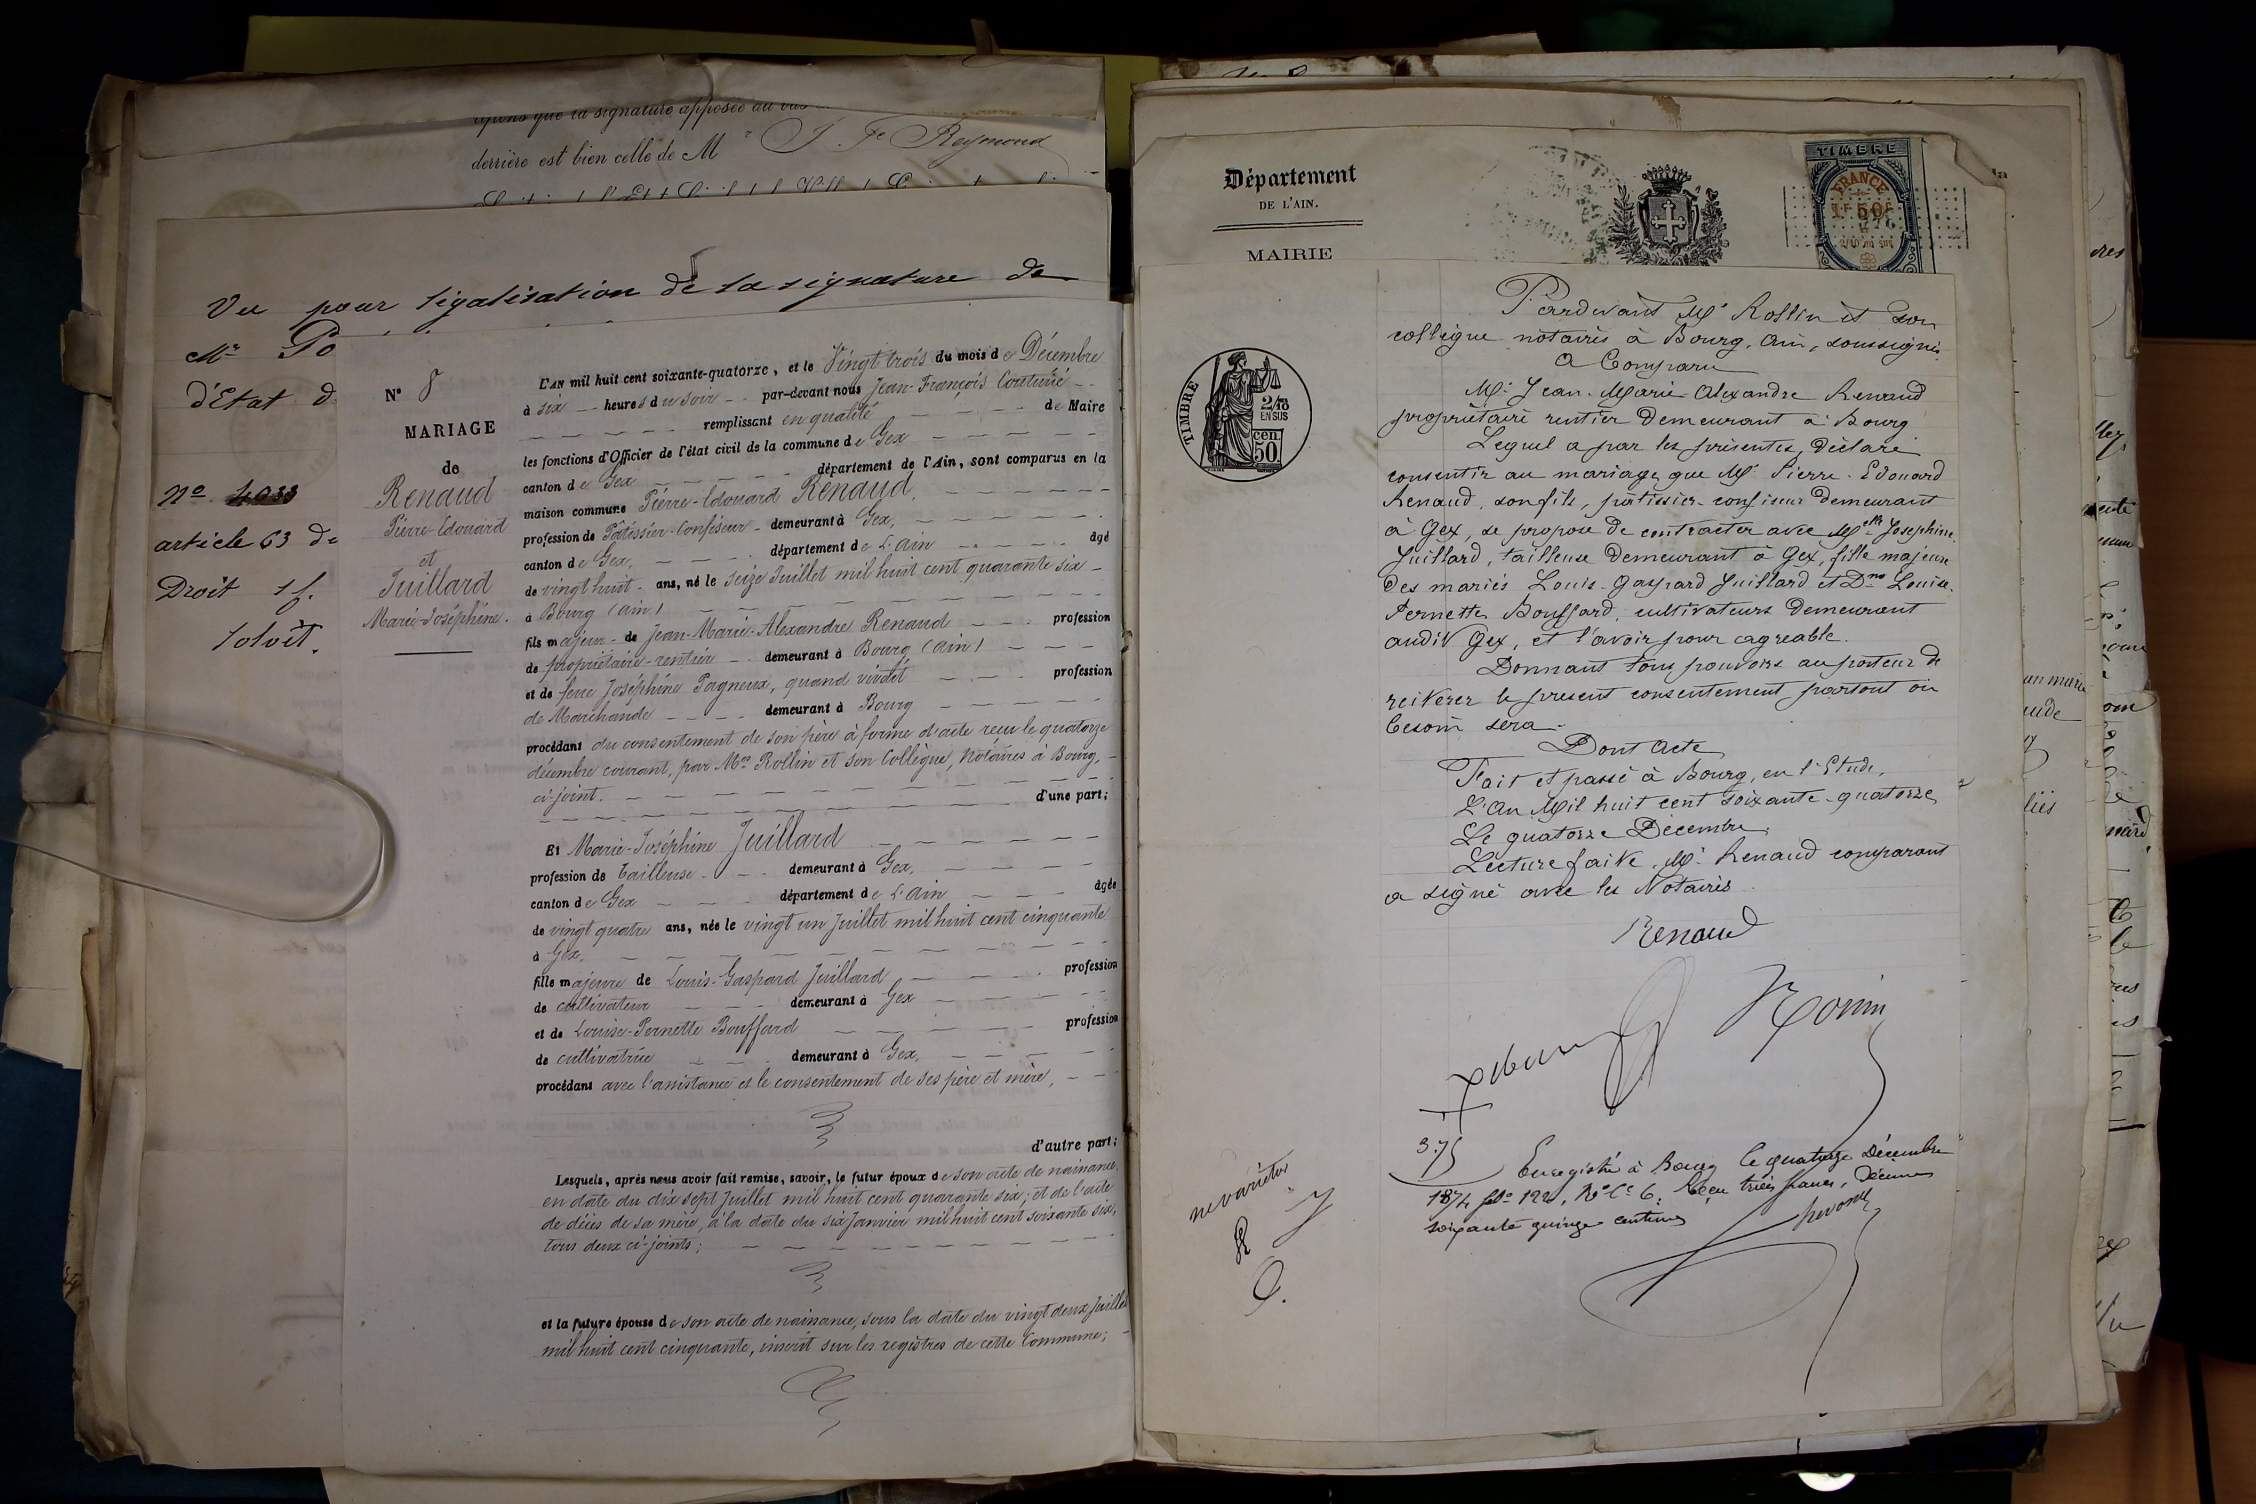 derrière est bien celle de M
Vu pour légalisation de la signature de
Mr Po
d'Etat d
No 4033
article 63 de
Droit 1 f.
solvit.
No 8
MARIAGE
de
Renaud
Pierre-Edouard
et
Juillard
Marie-Joséphine.
L'AN mil huit cent soixante-quatorze, et le Vingt trois du mois de Décembre
à six heures du soir par-devant nous Jean-François
remplissant en qualité de Maire
les fonctions d'Officier de l'état civil de la commune de Gex
canton de Gex département de l'Ain, sont comparus en la
maison commune Pierre-Edouard Renaud,
profession de Pâtissier-Confiseur demeurant à Gex,
canton de Gex, département de L'Ain âgé
de vingt huit ans, né le seize Juillet mil huit cent quarante six
à Bourg (Ain)
fils majeur de Jean-Marie-Alexandre Renaud profession
de propriétaire-rentier demeurant à Bourg (Ain)
et de feue Joséphine Pagneux, quand vivait profession
de Marchande demeurant à Bourg
procédant du consentement de son père à forme d'acte reçu le quatorze
décembre courant, par Mes Rollin et son Collègue, Notaires à Bourg,
ci-joint.
d'une part;
Et Marie-Joséphine Juillard
profession de Tailleuse demeurant à Gex,
canton de Gex département de L'Ain âgée
de vingt quatre ans, née le vingt un Juillet mil huit cent cinquante
à Gex,
fille majeure de Louis-Gaspard Juillard profession
de cultivateur demeurant à Gex
et de Louise-Pernette Bouffard profession
de cultivatrice demeurant à Gex,
procédant avec l'assistance et le consentement de ses père et mère,
d'autre part;
Lesquels, après nous avoir fait remise, savoir, le futur époux de son acte de naissance,
en date du dix sept Juillet mil huit cent quarante six; et de l'acte
de décès de sa mère, à la date du six Janvier mil huit cent soixante six,
tous deux ci-joints;
et la future épouse de son acte de naissance, sous la date du vingt deux Juillet
mil huit cent cinquante, inscrit sur les registres de cette Commune;
Département
DE L'AIN.
MAIRIE
TIMBRE
FRANCE
1F 50C
TIMBRE
2/10
EN SUS
cen.
50.
Pardevant Me Rollin et son
collègue notaires à Bourg, Ain, soussignés
A Comparu
Mr Jean-Marie Alexandre Renaud
propriétaire rentier demeurant à Bourg
Lequel a par les présentes, déclaré
consentir au mariage que Mr Pierre-Edouard
Renaud, son fils, pâtissier-confiseur demeurant
à Gex, se propose de contracter avec Melle Josephine
Juillard, tailleuse demeurant à Gex, fille majeure
des mariés Louis-Gaspard Juillard et Dme Louise
Pernette Bouffard, cultivateurs demeurant
audit Gex, et l'avoir pour agréable.
Donnant tous pouvoirs au porteur de
reiterer le present consentement partout où
besoin sera.
Dont Acte
Fait et passé à Bourg, en l'Etude,
L'an Mil huit cent soixante-quatorze
Le quatorze Décembre
Lecture faite, Mr Renaud comparant
a signé avec les Notaires
Renaud
3.75
Enregistré à Bourg le quatorze Décembre
1874 fo 122, Ro Ce 6. Reçu trois francs, Décimes
soixante quinze centimes
ne varietur